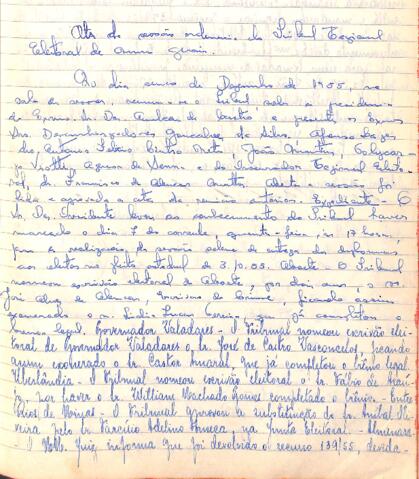 Ata da sessão ordinaria do Tribunal Regional
Eleitoral de Minas Gerais.
Ao dia cinco de Dezembro de 1955, na
sala de sessões, reuniu-se o Tribunal, sob a presidencia
do Exmo. Sr. Des. Amilcar de Castro e presentes os Exmos
Srs. Desembargadores Gonçalves da Silva, Afonso
Antonio Pedro Neto, João Martins,
Viotti, de Senna e do Procurador Regional Eleito-
ral, Dr. Francisco de Martins. Aberta a sessão, foi
lida e aprovada a ata da reunião anterior. Expediente - O
Sr. Des. Presidente levou ao conhecimento do Tribunal haver
marcado o dia 7 do corrente, quarta-feira, às 17 horas,
para a realização da sessão solene de entrega dos diplomas
aos eleitos no pleito estadual de 3.10.55. Abaeté - O Tribunal
nomeou escrivão eleitoral de Abaeté, por dois anos, o sr.
José de Alencar, escrivão do crime, ficando assim
exonerado o sr. que já completou o
bienio legal. Governador Valadares - O Tribunal nomeou escrivão elei-
toral de Governador Valadares o sr. José de Castro Vasconcelos, ficando
assim exonerado o sr. Castor Amaral que já completou o biênio legal.
Uberlândia - O Tribunal nomeou escrivão eleitoral o sr. Fábio de Araú-
jo, por haver o sr. William Machado Gomes completado o biênio. - Entre
Rios de Minas - O Tribunal aprovou a substituição do sr. Anibal Oli-
veira pelo sr. Tarcilio Adelino Fonseca, na Junta Eleitoral. - Almenara -
- O MM. Juiz informa que foi devolvido o recurso 139/55, devida-